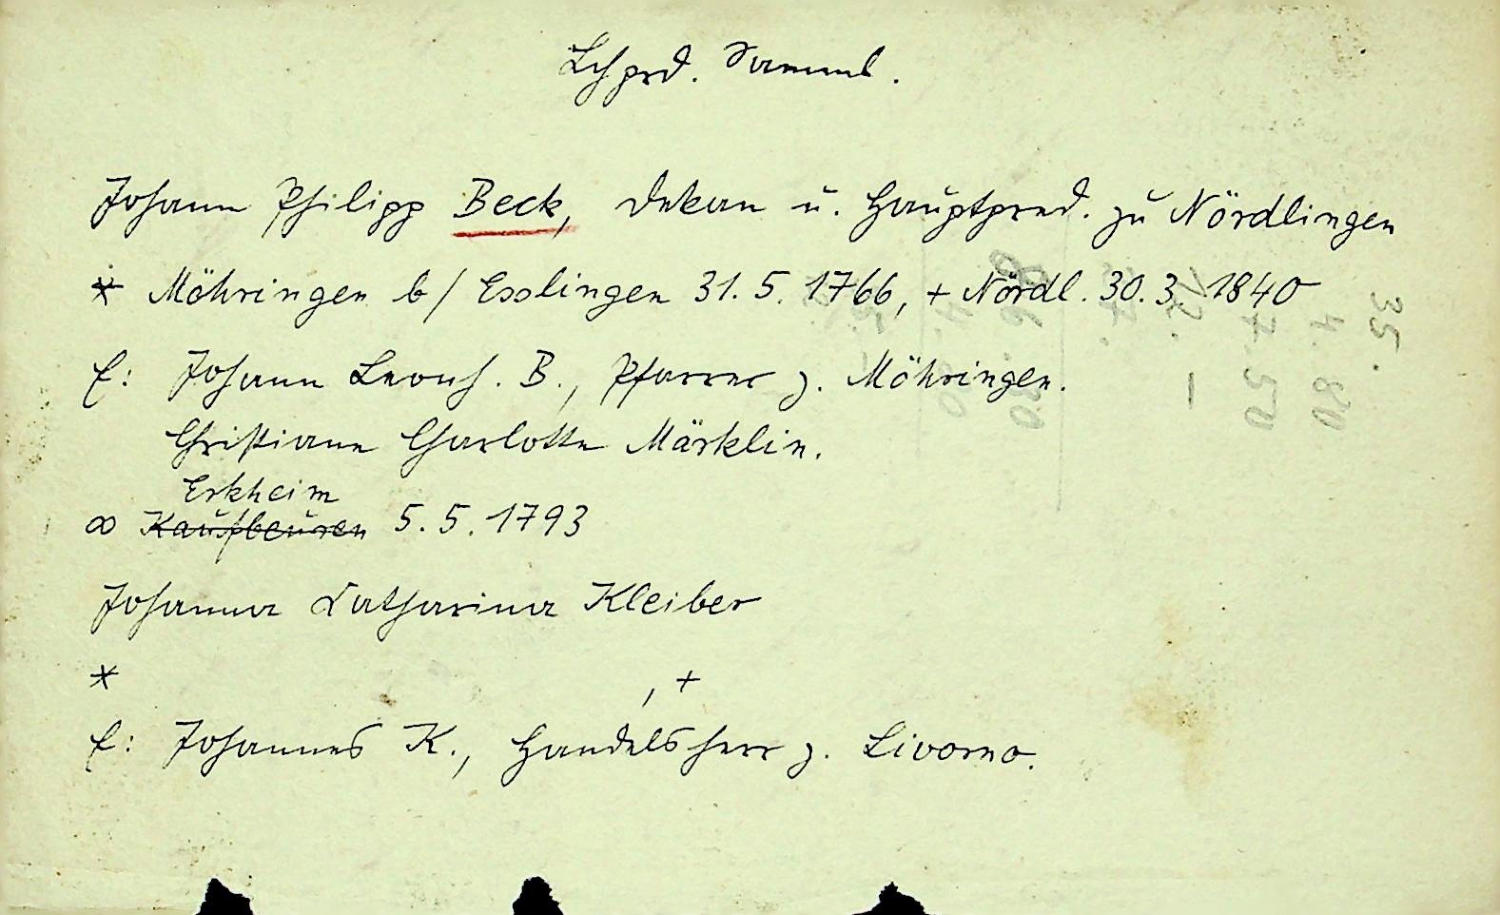 Lchprd. Samml.
Johann Philipp Beck, Dekan u. Hauptpred. zu Nördlingen
* Möhringen b/ Esslingen 31.5.1766, + Nördl. 30.3.1840
E: Johann Leonh. B., Pfarrer z. Möhringen.
Christiane Charlotte Märklin.
Erkheim
∞ Kaufbeuren 5.5.1793
Johanna Catharina Kleiber
* , +
E: Johannes K., Handelsherr z. Livorno.
35.
4.80
7.50
12.–